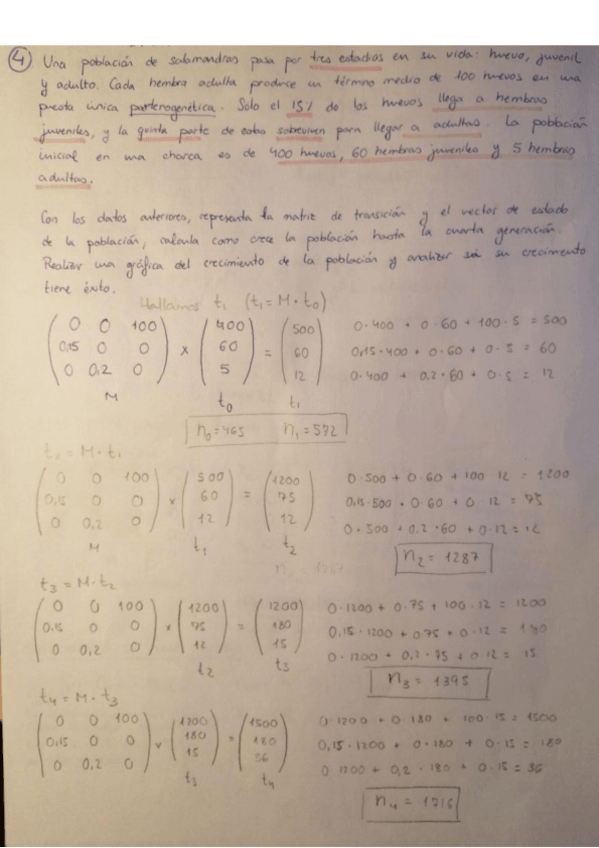 4 Una población de salamandras pasa por tres estadios en su vida: huevo, juvenil
y adulto. Cada hembra adulta produce un término medio de 100 huevos en una
puesta única partenogenética. Solo el 15% de los huevos llega a hembras
juveniles, y la quinta parte de estas sobreviven para llegar a adultas. La población
inicial en una charca es de 400 huevos, 60 hembras juveniles y 5 hembras
adultas.
Con los datos anteriores, representa la matriz de transición y el vector de estado
de la población, calcula como crece la población hasta la cuarta generación.
Realizar una gráfica del crecimiento de la población y analizar si su crecimiento
tiene éxito.
Hallamos t₁ (t₁ = M · t₀)
0 0 100 400 500 0·400 + 0·60 + 100·5 = 500
0,15 0 0 × 60 = 60 0,15·400 + 0·60 + 0·5 = 60
0 0,2 0 5 12 0·400 + 0,2·60 + 0·5 = 12
M t₀ t₁
n₀=465 n₁=572
t₂ = M · t₁
0 0 100 500 1200 0·500 + 0·60 + 100·12 = 1200
0,15 0 0 × 60 = 75 0,15·500 + 0·60 + 0·12 = 75
0 0,2 0 12 12 0·500 + 0,2·60 + 0·12 = 12
M t₁ t₂
n₂ = 1287
t₃ = M · t₂
0 0 100 1200 1200 0·1200 + 0·75 + 100·12 = 1200
0,15 0 0 × 75 = 180 0,15·1200 + 0·75 + 0·12 = 180
0 0,2 0 12 15 0·1200 + 0,2·75 + 0·12 = 15
t₂ t₃
n₃ = 1395
t₄ = M · t₃
0 0 100 1200 1500 0·1200 + 0·180 + 100·15 = 1500
0,15 0 0 × 180 = 180 0,15·1200 + 0·180 + 0·15 = 180
0 0,2 0 15 36 0·1200 + 0,2·180 + 0·15 = 36
t₃ t₄
n₄ = 1716